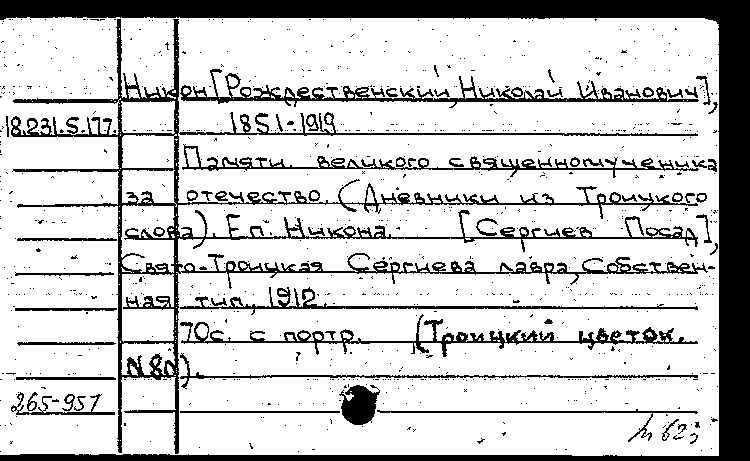 Никон [Рождественский, Николай Иванович],
18.231.5.177. 1851-1919
Памяти великого священномученика
за отечество. (Дневники из Троицкого
слова). Еп. Никона. [Сергиев Посад],
Свято-Троицкая Сергиева лавра, Собствен-
ная тип., 1912.
70с. с портр. (Троицкий цветок.
N80).
265-951